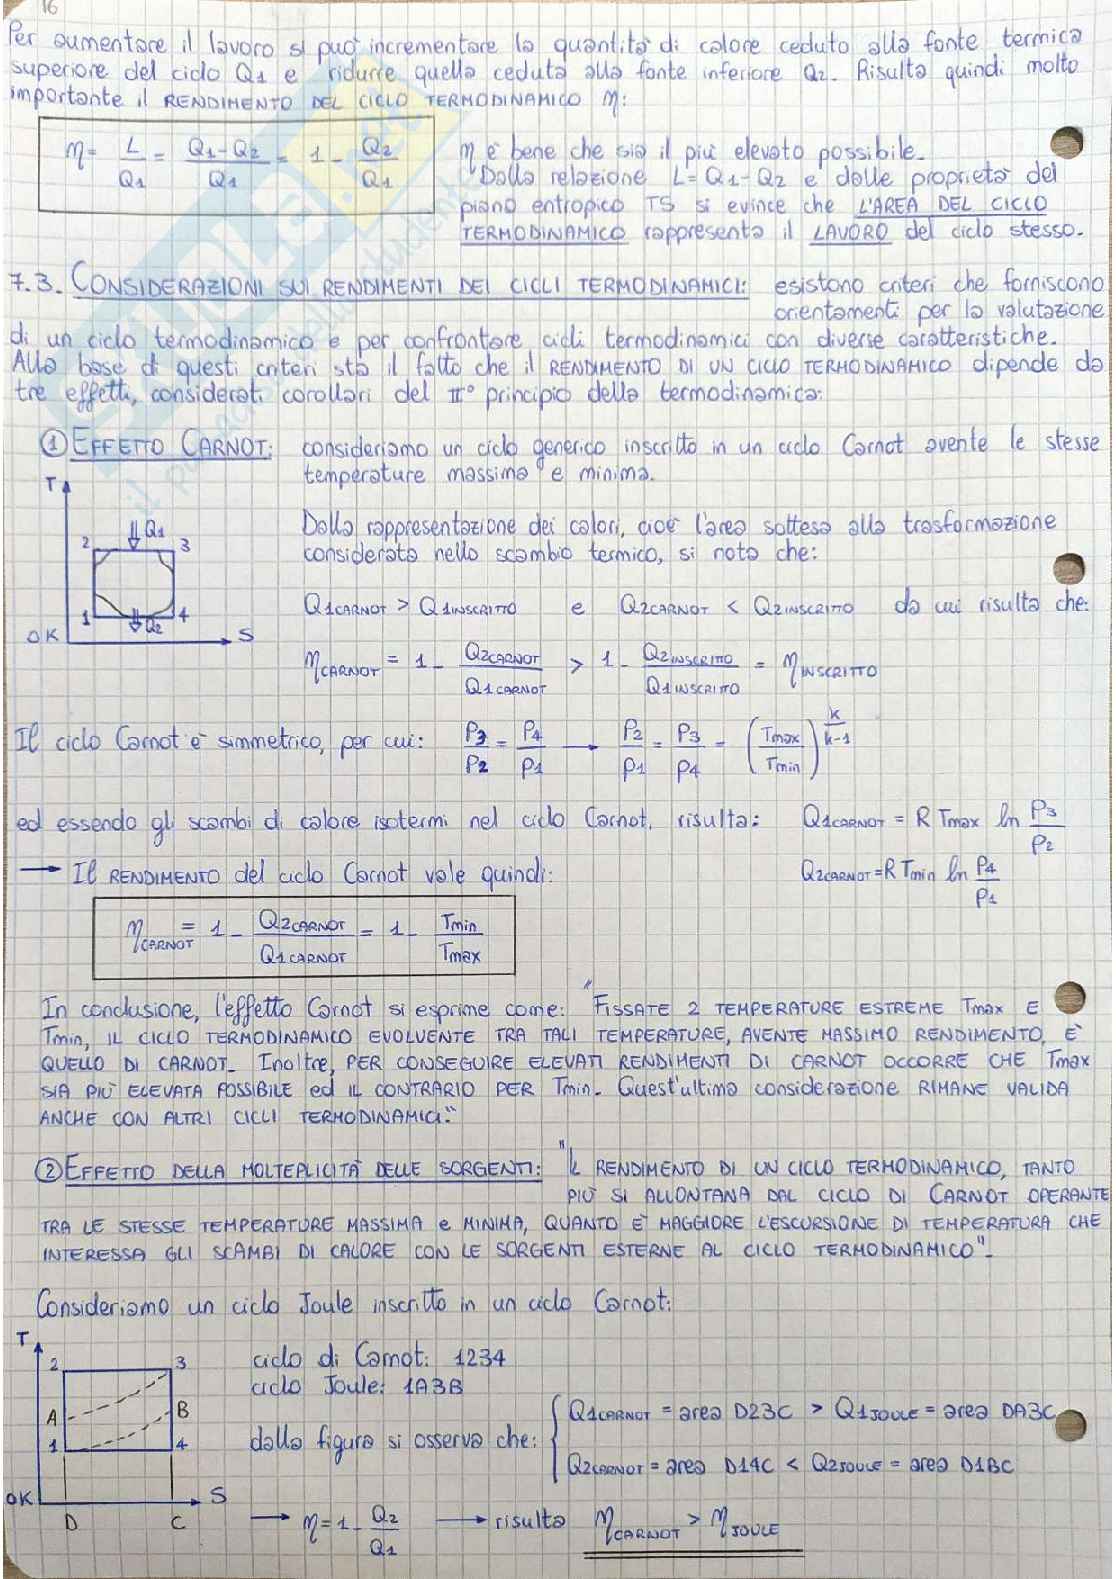 16
Per aumentare il lavoro si può incrementare la quantità di calore ceduto alla fonte termica
superiore del ciclo Q1 e ridurre quella ceduta alla fonte inferiore Q2. Risulta quindi molto
importante il RENDIMENTO DEL CICLO TERMODINAMICO η:
η = L/Q1 = Q1-Q2/Q1 = 1 - Q2/Q1
η è bene che sia il più elevato possibile.
Dalla relazione L=Q1-Q2 e dalle proprietà del
piano entropico TS si evince che L'AREA DEL CICLO
TERMODINAMICO rappresenta il LAVORO del ciclo stesso.
7.3. CONSIDERAZIONI SUI RENDIMENTI DEI CICLI TERMODINAMICI: esistono criteri che forniscono
orientamenti per la valutazione
di un ciclo termodinamico e per confrontare cicli termodinamici con diverse caratteristiche.
Alla base di questi criteri sta il fatto che il RENDIMENTO DI UN CICLO TERMODINAMICO dipende da
tre effetti, considerati corollari del II° principio della termodinamica:
① EFFETTO CARNOT: consideriamo un ciclo generico inscritto in un ciclo Carnot avente le stesse
temperature massima e minima.
T
Q1
2 3
1 4
Q2
0K S
Dalla rappresentazione dei calori, cioè l'area sottesa alla trasformazione
considerata nello scambio termico, si nota che:
Q1CARNOT > Q1INSCRITTO e Q2CARNOT < Q2INSCRITTO da cui risulta che:
ηCARNOT = 1 - Q2CARNOT/Q1CARNOT > 1 - Q2INSCRITTO/Q1INSCRITTO = ηINSCRITTO
Il ciclo Carnot è simmetrico, per cui: P3/P2 = P4/P1 → P2/P1 = P3/P4 = (Tmax/Tmin)^k/k-1
ed essendo gli scambi di calore isotermi nel ciclo Carnot, risulta: Q1CARNOT = R Tmax ln P3/P2
→ Il RENDIMENTO del ciclo Carnot vale quindi: Q2CARNOT = R Tmin ln P4/P1
ηCARNOT = 1 - Q2CARNOT/Q1CARNOT = 1 - Tmin/Tmax
In conclusione, l'effetto Carnot si esprime come: "FISSATE 2 TEMPERATURE ESTREME Tmax E
Tmin, IL CICLO TERMODINAMICO EVOLVENTE TRA TALI TEMPERATURE, AVENTE MASSIMO RENDIMENTO, È
QUELLO DI CARNOT. Inoltre, PER CONSEGUIRE ELEVATI RENDIMENTI DI CARNOT OCCORRE CHE Tmax
SIA PIÙ ELEVATA POSSIBILE ed IL CONTRARIO PER Tmin. Quest'ultima considerazione RIMANE VALIDA
ANCHE CON ALTRI CICLI TERMODINAMICI."
② EFFETTO DELLA MOLTEPLICITÀ DELLE SORGENTI: "IL RENDIMENTO DI UN CICLO TERMODINAMICO, TANTO
PIÙ SI ALLONTANA DAL CICLO DI CARNOT OPERANTE
TRA LE STESSE TEMPERATURE MASSIMA e MINIMA, QUANTO È MAGGIORE L'ESCURSIONE DI TEMPERATURA CHE
INTERESSA GLI SCAMBI DI CALORE CON LE SORGENTI ESTERNE AL CICLO TERMODINAMICO".
Consideriamo un ciclo Joule inscritto in un ciclo Carnot:
T
2 3
A B
1 4
0K S
D C
ciclo di Carnot: 1234
ciclo Joule: 1A3B
dalla figura si osserva che:
Q1CARNOT = area D23C > Q1JOULE = area DA3C
Q2CARNOT = area D14C < Q2JOULE = area D1BC
→ η = 1 - Q2/Q1 → risulta ηCARNOT > ηJOULE